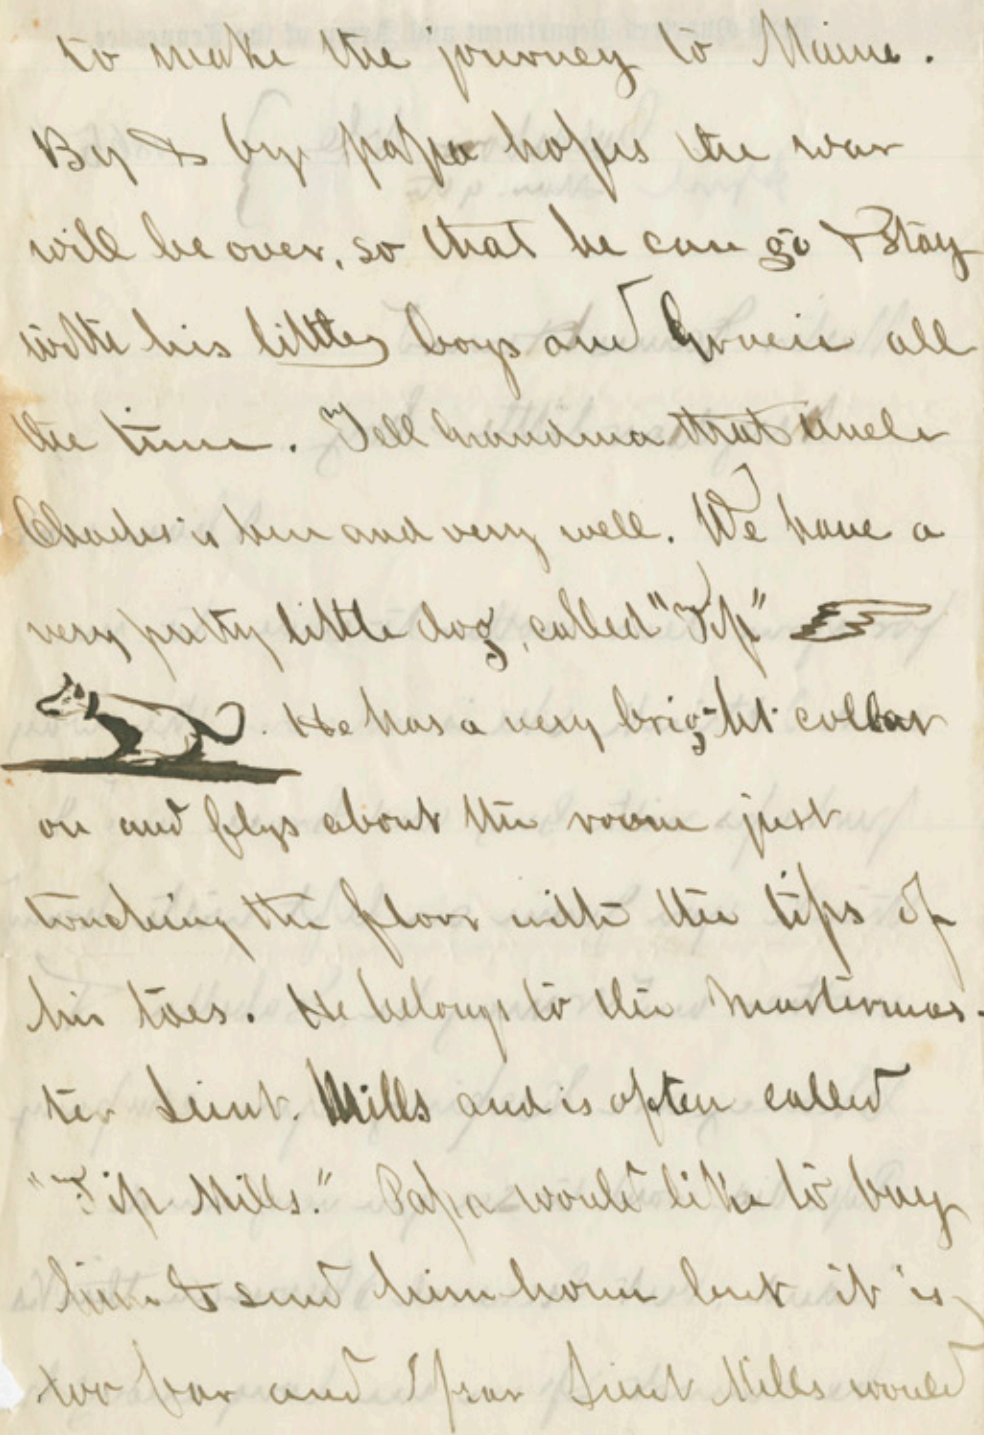 to make the journey to Maine.
By & by papa hopes the war
will be over, so that he can go & stay
with his little boys and Gracie all
the time. Tell Grandma that Uncle
Charles is here and very well. We have a
very pretty little dog, called "Tip"
. He has a very bright collar
on and flys about the room just
touching the floor with the tips of
his toes. He belongs to the Mustermas-
ter Lieut. Mills and is often called
"Tip Mills." Papa would like to buy
him & send him home but it is
too far and I fear Lieut Mills would